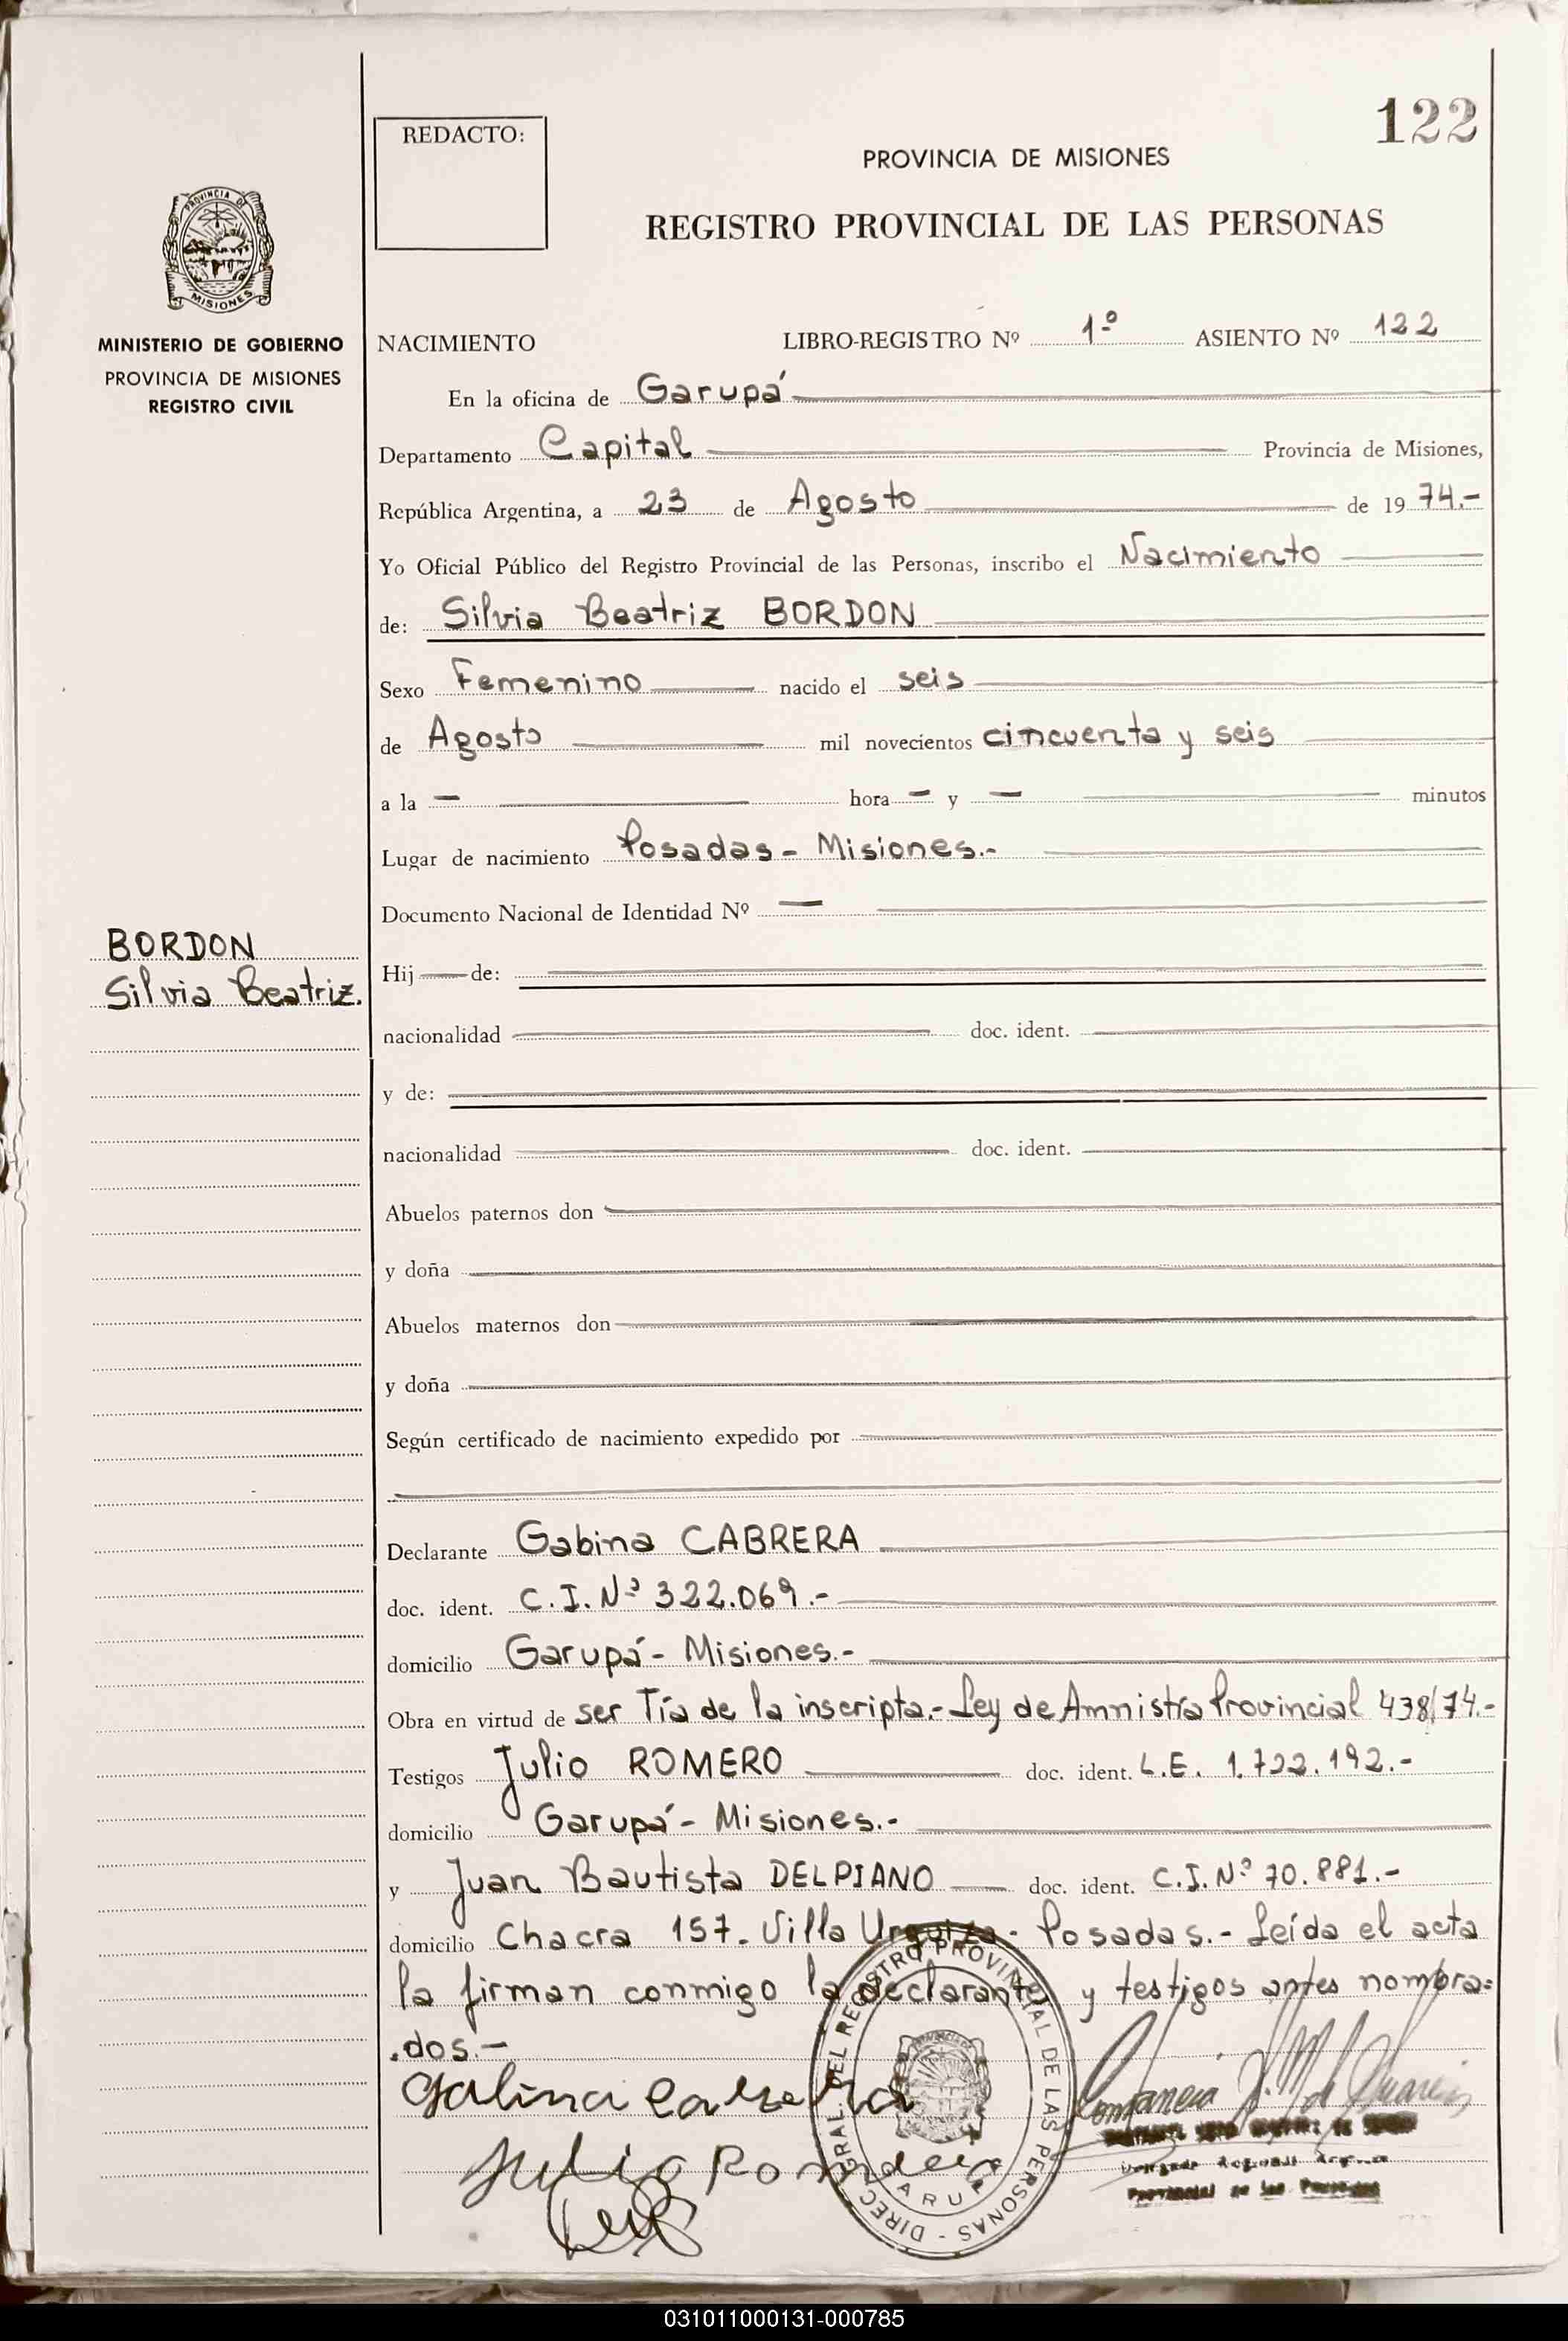 122
REDACTO:
PROVINCIA DE MISIONES
REGISTRO PROVINCIAL DE LAS PERSONAS
PROVINCIA DE
MISIONES
MINISTERIO DE GOBIERNO
PROVINCIA DE MISIONES
REGISTRO CIVIL
NACIMIENTO LIBRO-REGISTRO Nº 1º ASIENTO Nº 122
En la oficina de Garupá
Departamento Capital Provincia de Misiones,
República Argentina, a 23 de Agosto de 1974.-
Yo Oficial Público del Registro Provincial de las Personas, inscribo el Nacimiento
de: Silvia Beatriz BORDON
Sexo Femenino nacido el seis
de Agosto mil novecientos cincuenta y seis
a la — hora — y — minutos
Lugar de nacimiento Posadas - Misiones.-
Documento Nacional de Identidad Nº —
BORDON
Silvia Beatriz.
Hij — de:
nacionalidad doc. ident.
y de:
nacionalidad doc. ident.
Abuelos paternos don
y doña
Abuelos maternos don
y doña
Según certificado de nacimiento expedido por
Declarante Gabina CABRERA
doc. ident. C.I. Nº 322.069.-
domicilio Garupá - Misiones.-
Obra en virtud de ser Tía de la inscripta.- Ley de Amnistía Provincial 438/74.-
Testigos Julio ROMERO doc. ident. L.E. 1.722.192.-
domicilio Garupá - Misiones.-
y Juan Bautista DELPIANO doc. ident. C.I. Nº 70.881.-
domicilio Chacra 157. Villa Urquiza - Posadas.- Leída el acta
la firman conmigo la declarante y testigos antes nombra=
.dos.-
Gabina Cabrera
Julio Romero
DIREC. GRAL. DEL REGISTRO PROVINCIAL DE LAS PERSONAS -
GARUPA
Provincial de las Personas
031011000131-000785